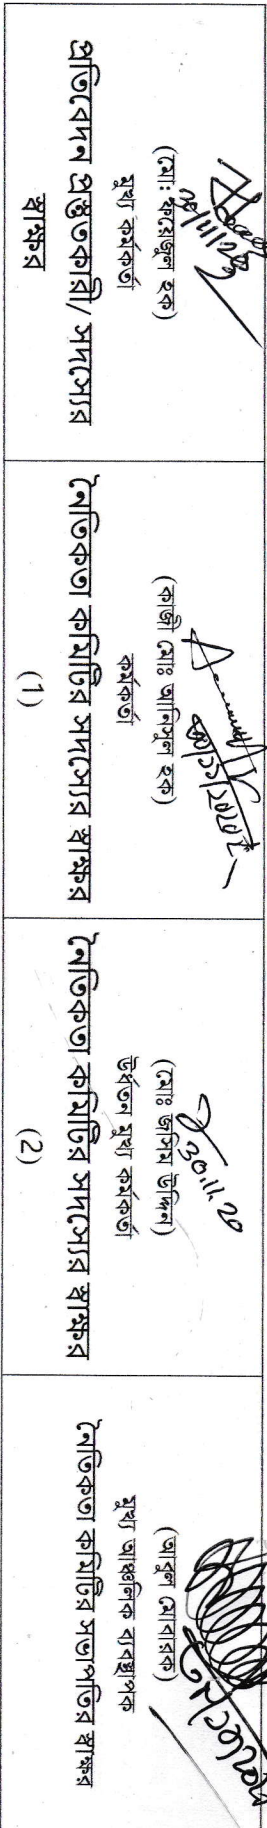 (মোঃ ফয়েজুল হক)
মূখ্য কর্মকর্তা
প্রতিবেদন প্রস্তুতকারী/ সদস্যের
স্বাক্ষর
(কাজী মোঃ আনিসুল হক)
কর্মকর্তা
নৈতিকতা কমিটির সদস্যের স্বাক্ষর
(1)
30.11.20
(মোঃ জসিম উদ্দিন)
উর্ধতন মূখ্য কর্মকর্তা
নৈতিকতা কমিটির সদস্যের স্বাক্ষর
(2)
(আবুল মোবারক)
মূখ্য আঞ্চলিক ব্যবস্থাপক
নৈতিকতা কমিটির সভাপতির স্বাক্ষর